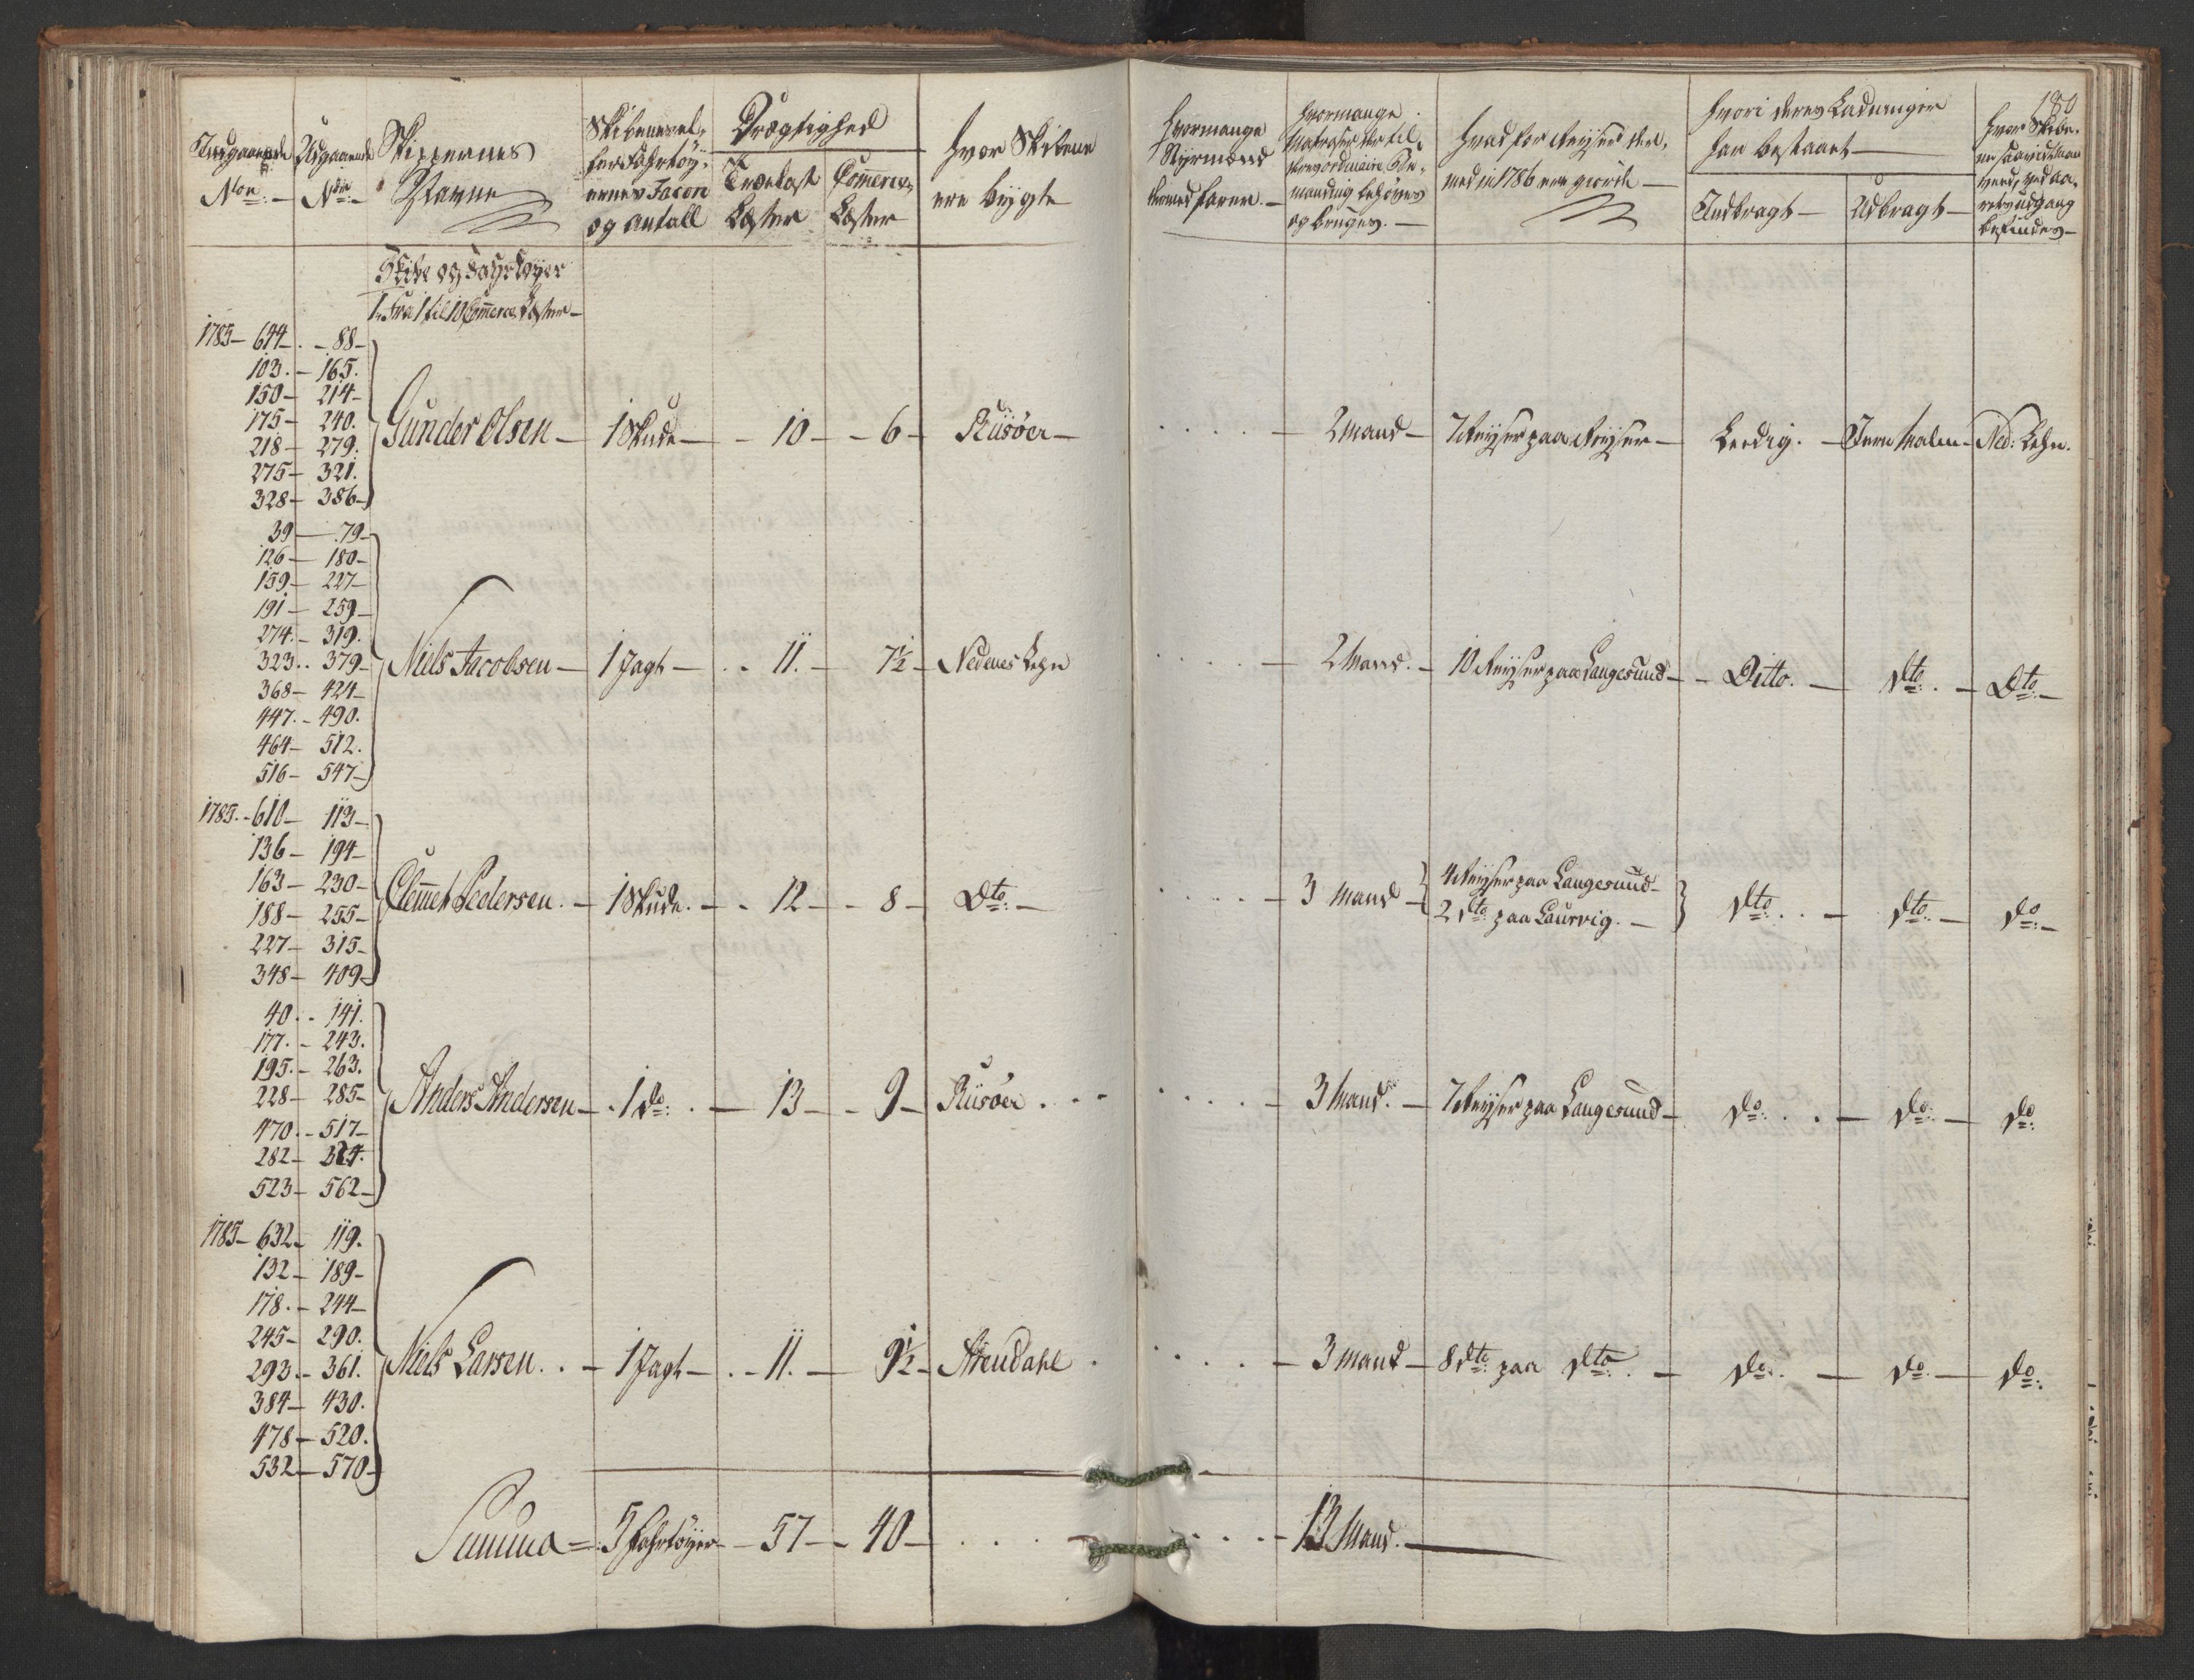 180
Indgaaende Nro:
Udgaaende Nro:
Skippernes Navne
Skibenes eller Fahrtøyernes Facon og antall
Drægtighed
Trælast Læster
Comerce Læster
Hvor Skibene ere bygte
Hvormange Styrmænd dermed farer.
Hvormange Matroser der til
og bruges.
Hvad for Reyser der med in 1786 ere giorde
Hvori deres Ladninger har bestaaet
Indbragt
Udbragt
befindes
Skibe og Fahrtøyer
1. Fra 1 til 10 Comerce Læster
1785 – 644 – 88 –
103. – 165.
150 – 214 –
175 – 240.
218 – 279.
275 – 321.
328 – 386 –
Gunder Olsen – 1 Skude – 10 – 6 – Riisøer – 2 Mand – 7 Reyser paa Reyser – Leedig. – Jern Malm – Ned: Lehn.
39 – 79 –
126 – 180 –
159 – 227 –
191 – 259 –
274. – 319.
323. . 379 –
368 – 424 –
447. – 490.
464 – 512.
516 – 547 –
Niels Jacobsen – 1 Jagt – 11. – 7½ – Nedenes Lehn – 2 Mand. – 10 Reyser paa Langesund – Ditto. – dto. – Dto –
1785. – 610 – 113 –
136 – 194 –
163 – 230 –
188 – 255 –
227 – 315 –
348 – 409 –
Clemet Pedersen. – 1 Skude. – 12 – 8 – Dto: – 3 Mand – 4 Reyser paa Langesund –
2 dto paa Laurvig. – dto: . – dto: – do: –
40. . 141.
177. – 243.
195. – 263.
228 – 285 –
470. – 517 –
282 – 324.
523 – 562 –
Anders Andersen – 1 do: . – 13 – 9 – Riisøer . – 3 Mand. – 7 Reyser paa Langesund – do: . – do: – do:
1785 – 632 – 119.
132 – 189 –
178. – 244 –
245 – 290.
293. – 361.
384 – 430.
478 – 520.
532 – 570 –
Niels Larsen. . – 1 Jagt – 11. – 9½ – Arendahl . – 3 Mand – 8 dto: paa dto: . – do: – do: – do:
Summa = 5 Fahrtøyer – 57 – 40 – 13 Mand. –